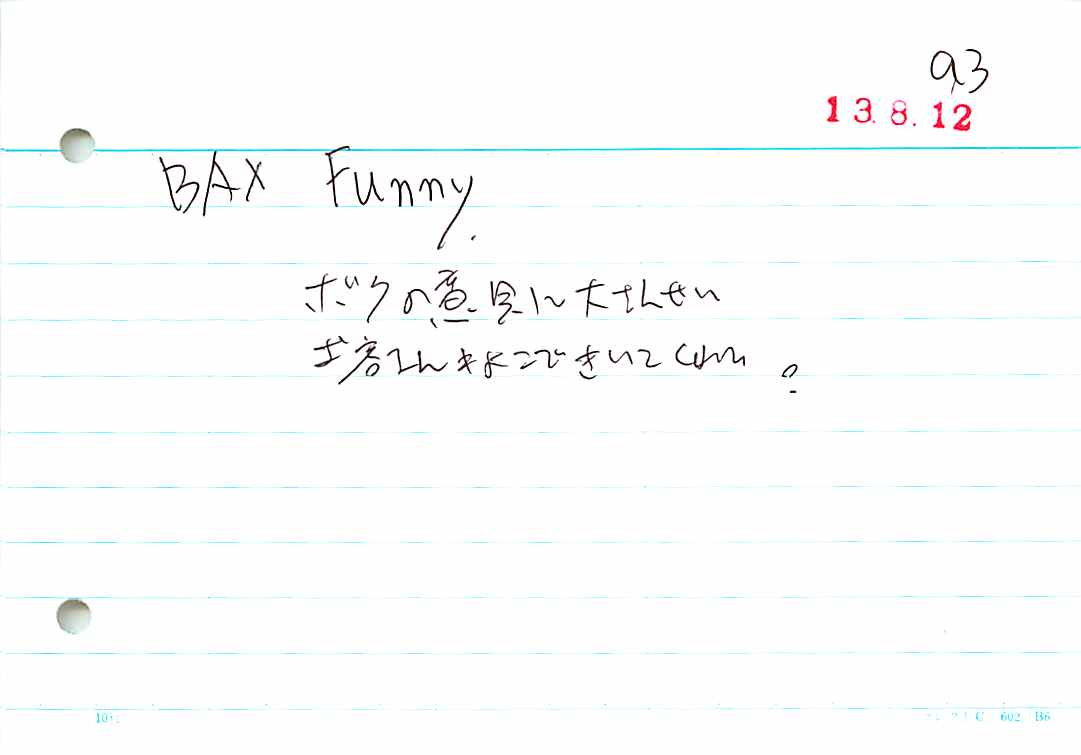 93
13.8.12
BAX Funny.
ボクの意見に大さんせい
お客さんよこできいてくれい?
602 B6